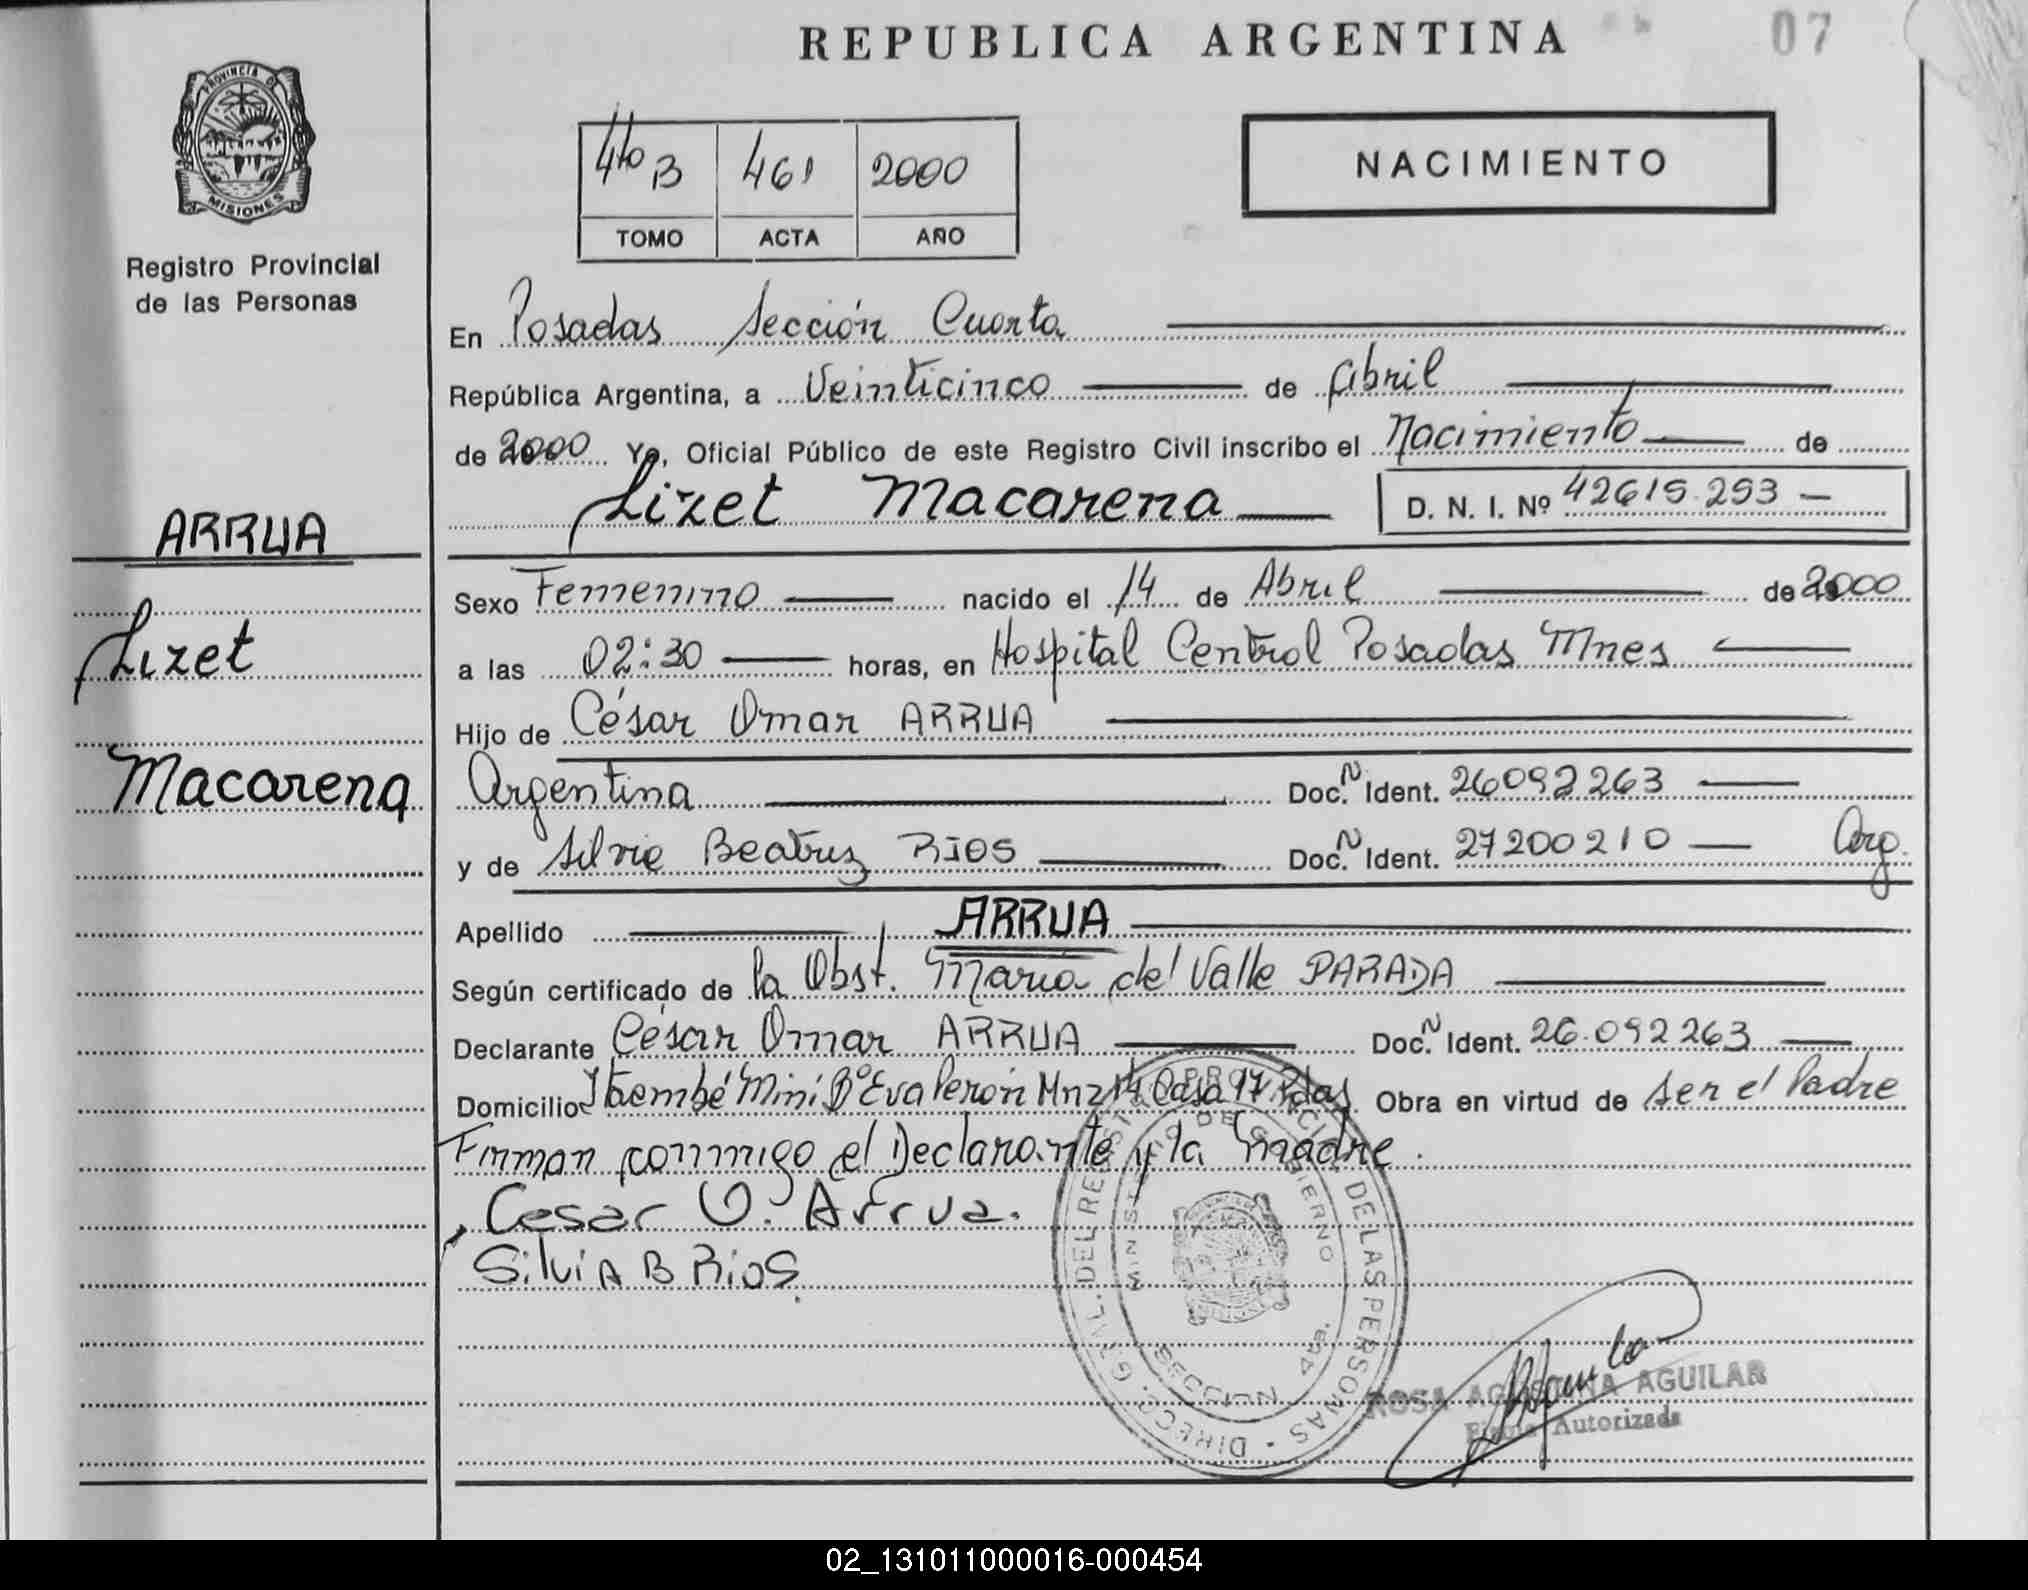 REPUBLICA ARGENTINA
07
PROVINCIA DE
MISIONES
Registro Provincial
de las Personas
4to B 461 2000
TOMO ACTA AÑO
NACIMIENTO
En Posadas Sección Cuarta
República Argentina, a Veinticinco de Abril
de 2000 Yo, Oficial Público de este Registro Civil inscribo el Nacimiento de
Lizet Macarena D. N. I. Nº 42615.253
ARRUA
Lizet
Macarena
Sexo Femenino nacido el 14 de Abril de 2000
a las 02:30 horas, en Hospital Central Posadas Mnes
Hijo de César Omar ARRUA
Argentina Doc. N Ident. 26092263
y de Silvia Beatriz RIOS Doc. N Ident. 27200210 Arg.
Apellido ARRUA
Según certificado de la Obst. María del Valle PARADA
Declarante César Omar ARRUA Doc. N Ident. 26.092263
Domicilio Itaembé Miní Bº Eva Perón Mnz 14 Casa 17 Pdas Obra en virtud de ser el Padre
Firman conmigo el Declarante y la madre.
Cesar O. Arrua.
Silvia B Rios
DIRECC. GRAL. DEL REGISTRO PROVINCIAL DE LAS PERSONAS
MINISTERIO DE GOBIERNO
SECCION 4ta.
ROSA AGUSTINA AGUILAR
Firma Autorizada
02_131011000016-000454